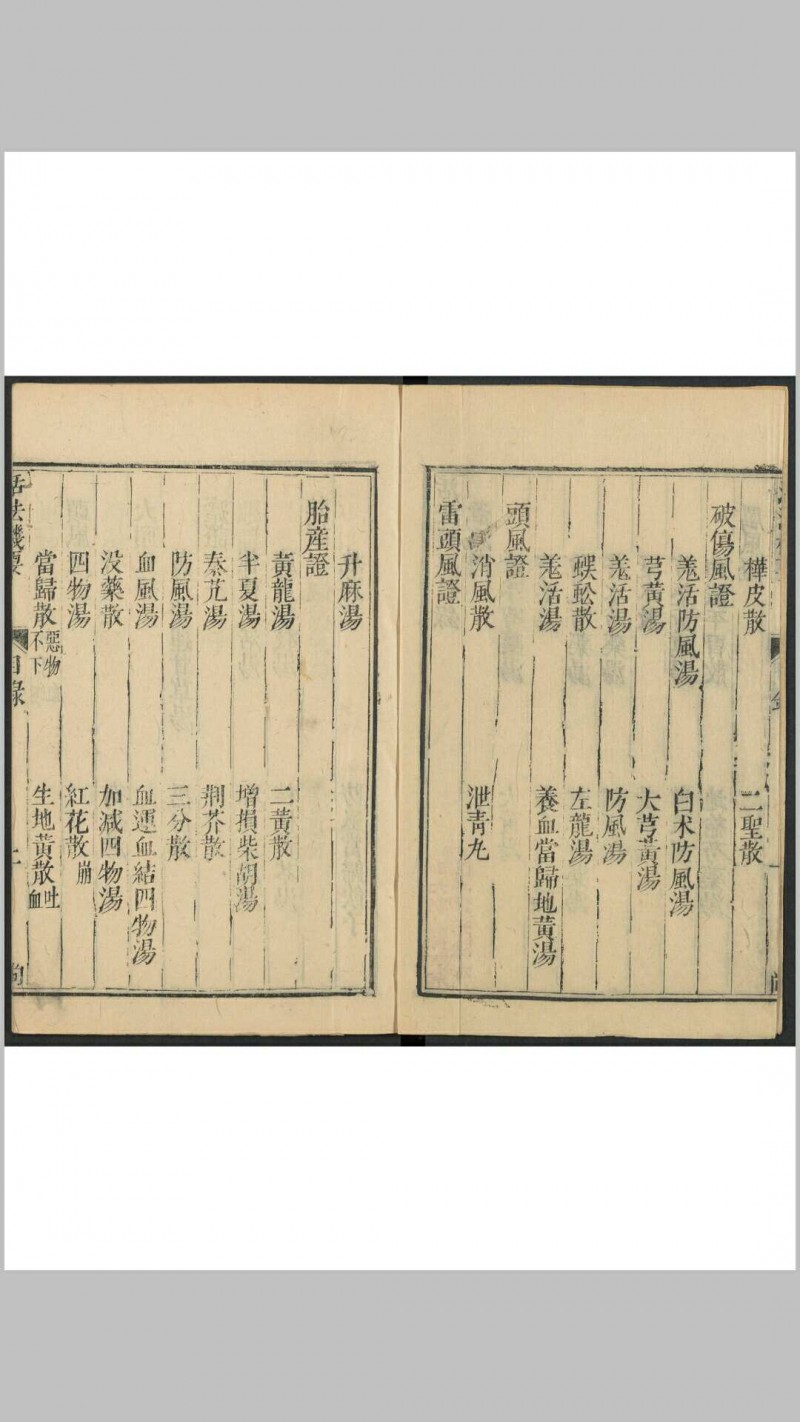 樺皮散 二聖散
破傷風證
羗活防風湯 白术防風湯
芎黃湯 大芎黃湯
羗活湯 防風湯
蜈蚣散 左龍湯
羗活湯 養血當歸地黃湯
頭風證
消風散 泄靑丸
雷頭風證
升麻湯
胎產證
黃龍湯 二黃散
半夏湯 增損柴胡湯
秦艽湯 荆芥散
防風湯 三分散
血風湯 血運血結四物湯
没藥散 加减四物湯
四物湯 紅花散崩
當歸散惡物不下 生地黃散吐血
活法機要 目錄